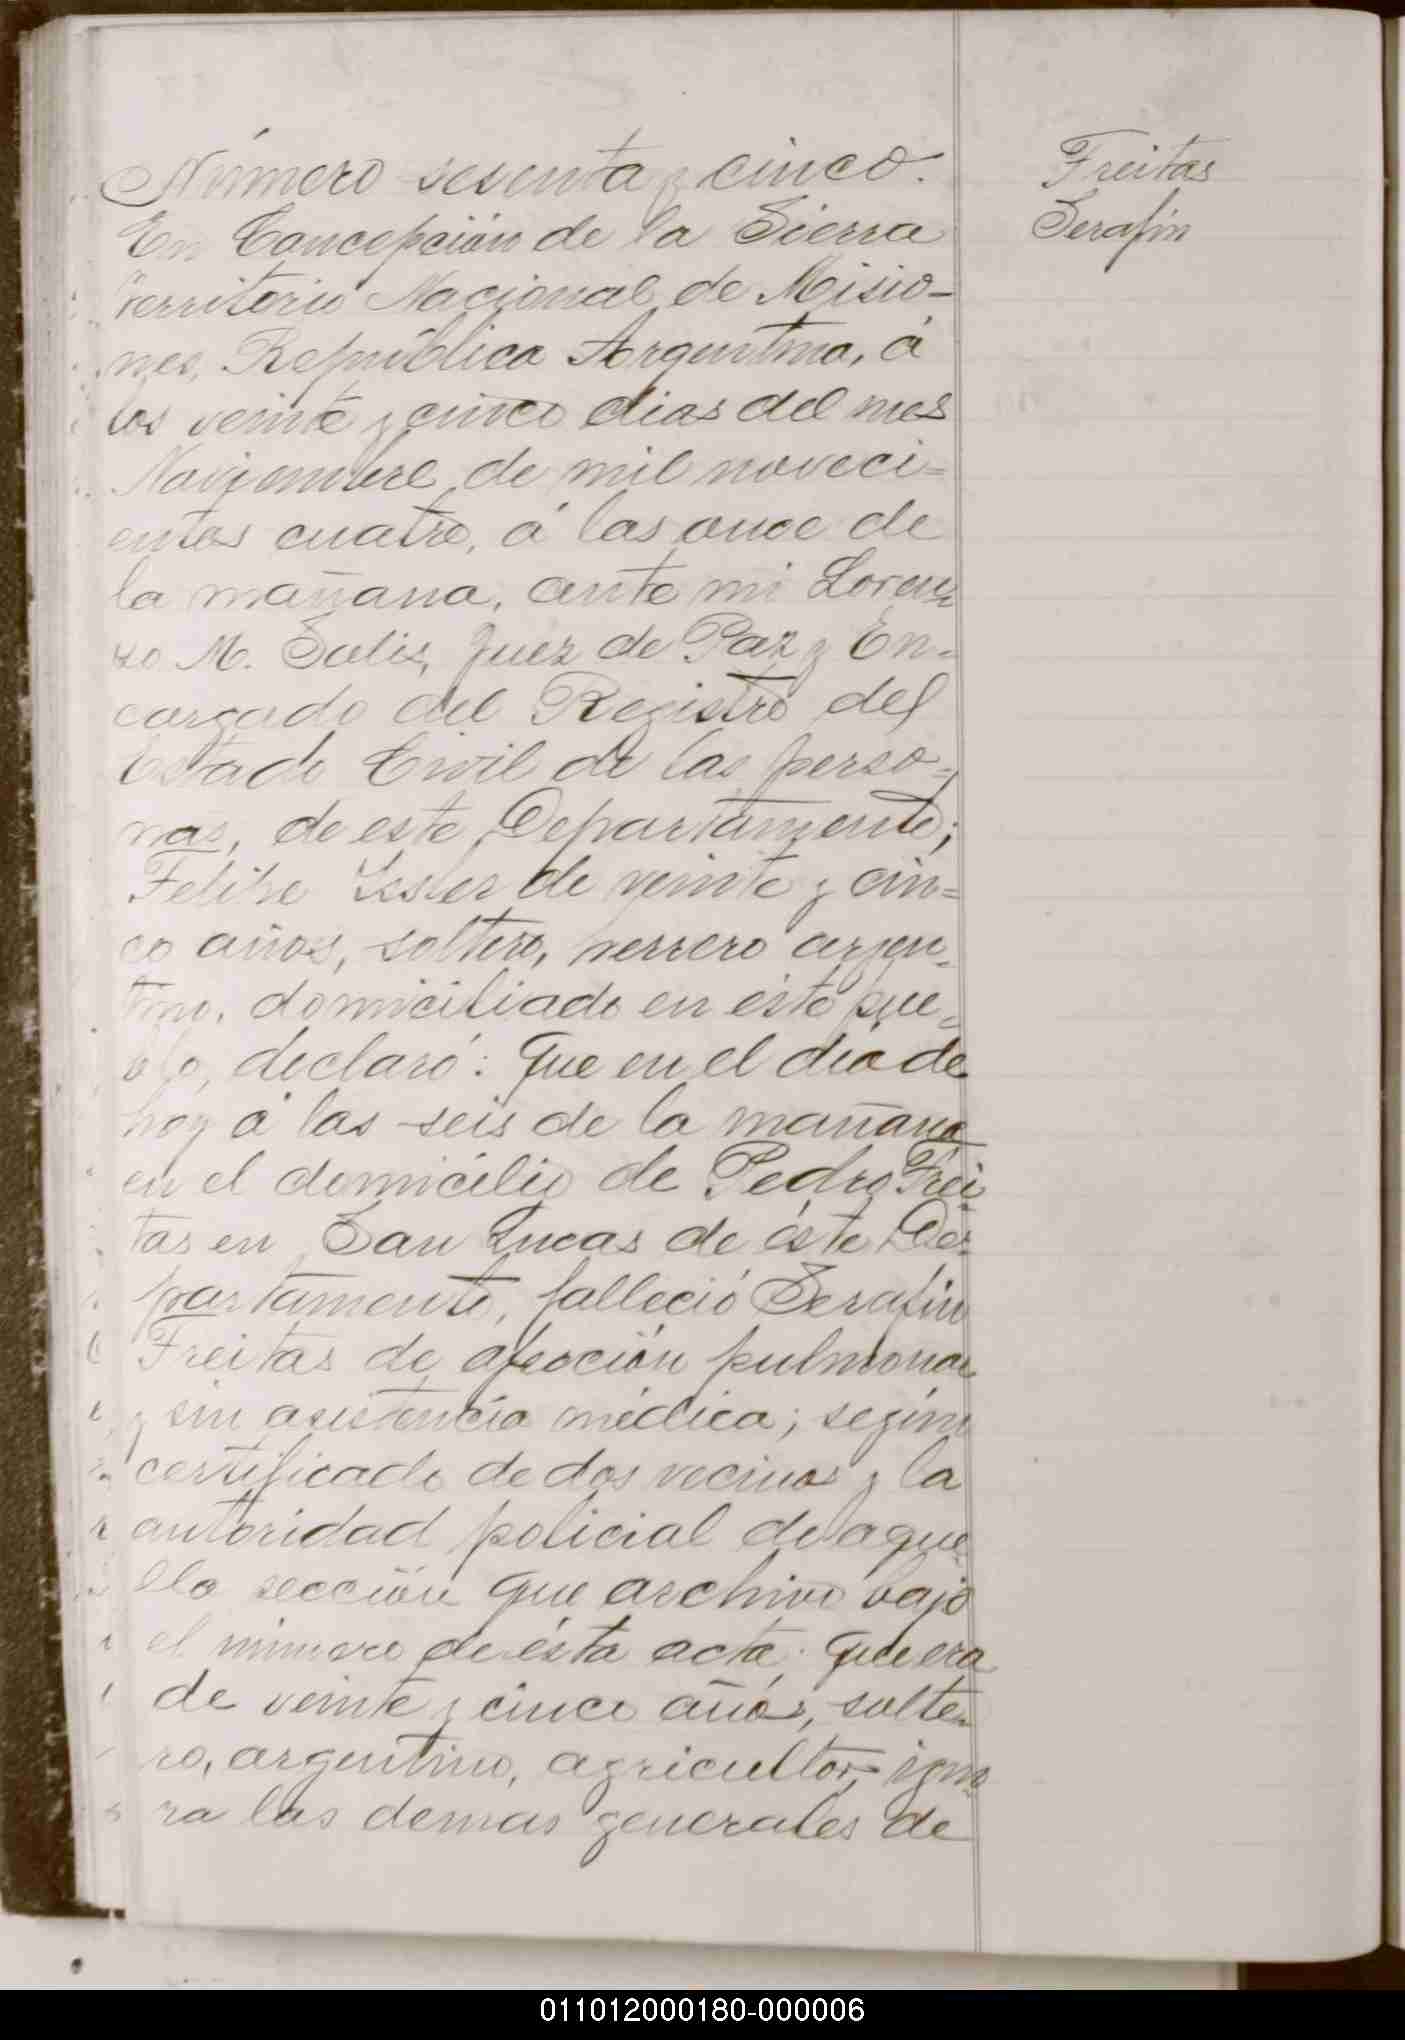 Número sesenta y cinco.
En Concepción de la Sierra
Territorio Nacional de Misio-
nes, República Argentina, á
los veinte y cinco dias del mes
Noviembre de mil noveci=
entos cuatro, á las once de
la mañana, ante mi Loren-
zo M. Solis, Juez de Paz y En-
cargado del Registro del
Estado Civil de las perso-
nas, de este Departamento;
Felipe de veinte y cin=
co años, soltero, herrero argen-
tino, domiciliado en éste pue-
blo, declaró: Que en el dia de
hoy á las seis de la mañana
en el domicilio de Pedro Frei-
tas en San Lucas de éste De-
partamento, falleció Serafin
Freitas de afección pulmonar
y sin asistencia médica; según
certificado de dos vecinos y la
autoridad policial de aque-
lla sección que archivo bajo
el número de ésta acta; que era
de veinte y cinco años, solte-
ro, argentino, agricultor, igno-
ra las demas generales de
Freitas
Serafin
011012000180-000006